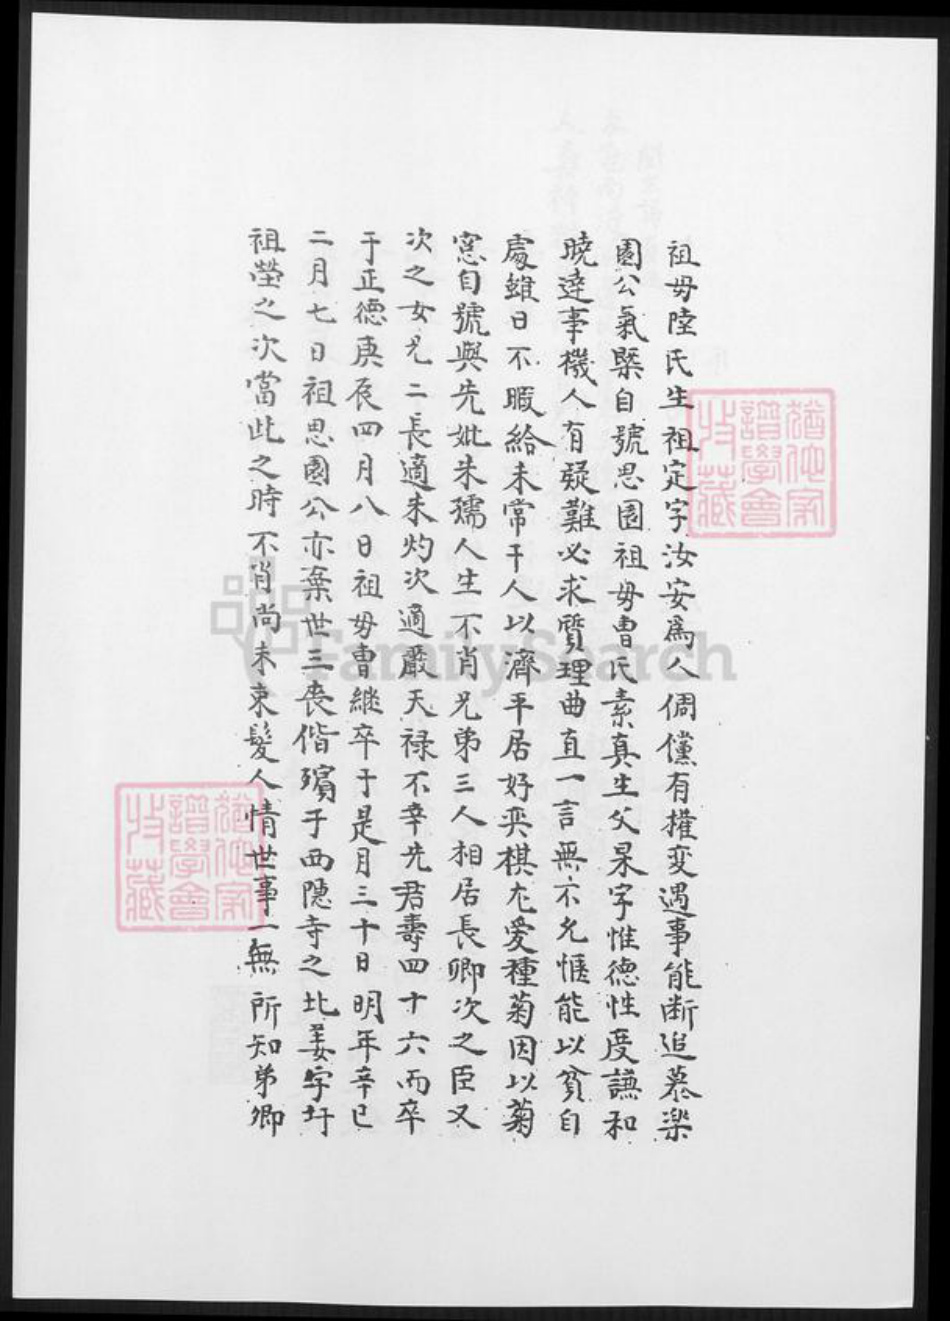 祖毋陸氏生祖定字汝安爲人倜儻有權变遇事能断追慕楽
園公氣槩自號思園祖毋曹氏素真生父杲字惟德性度謙和
曉達事機人有疑難必求質理曲直一言無不允愜能以貧自
處雖日不暇給未常干人以濟平居好奕棋尢爱種菊因以菊
窓自號與先妣朱孺人生不肖兄弟三人相居長卿次之臣又
次之女兄二長適朱灼次適嚴天禄不幸先君壽四十六而卒
于正德庚辰四月八日祖毋曹継卒于是月三十日明年辛巳
二月七日祖思園公亦棄世三丧偕殯于西隠寺之北姜字圩
祖塋之次當此之時不肖尚未束髮人情世事一無所知弟卿
猶他家
譜學會
收藏
猶他家
譜學會
收藏
FamilySearch